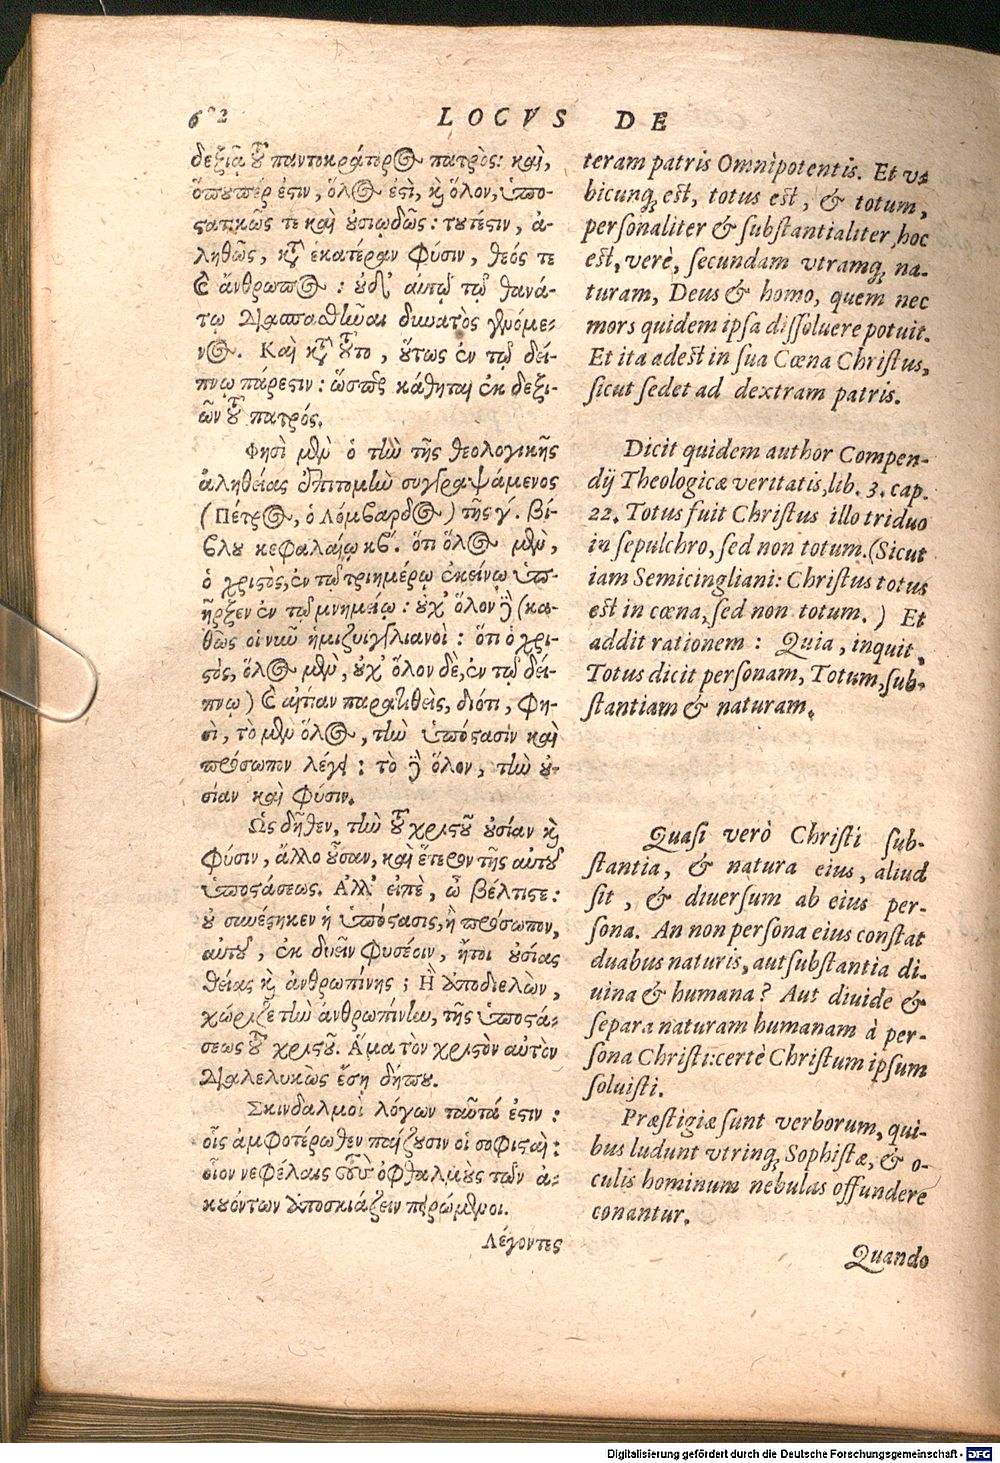 602
LOCVS DE
δεξιᾷ τοῦ παντοκράτορος πατρὸς: καὶ,
ὅπουπέρ ἐστιν, ὅλος ἐστὶ, καὶ ὅλον, ὑπο-
στατικῶς τε καὶ οὐσιωδῶς: τουτέστιν, ἀ-
ληθῶς, κατ' ἑκατέραν φύσιν, θεός τε
καὶ ἄνθρωπος: οὐδ' αὐτῷ τῷ θανά-
τῳ διασπασθῆναι δυνατὸς γενόμε-
νος. Καὶ κατὰ τοῦτο, οὕτως ἐν τῷ δεί-
πνῳ πάρεστιν: ὥσπερ κάθηται ἐκ δεξι-
ῶν τοῦ πατρός.
Φησὶ μὲν ὁ τὴν τῆς θεολογικῆς
ἀληθείας ἐπιτομὴν συγγραψάμενος
(Πέτρος, ὁ Λόμβαρδος) τῆς γ΄. βί-
βλου κεφαλαίῳ κβ΄. ὅτι ὅλος μὲν,
ὁ χριστὸς, ἐν τῷ τριημέρῳ ἐκείνῳ ὑπ-
ῆρξεν ἐν τῷ μνημείῳ: οὐχ' ὅλον δὲ (κα-
θὼς οἱ νῦν ἡμιζυιγγλιανοὶ: ὅτι ὁ χρι-
στὸς, ὅλος μὲν, οὐχ' ὅλον δὲ, ἐν τῷ δεί-
πνῳ) καὶ αἰτίαν παρατιθεὶς, διότι, φη-
σὶ, τὸ μὲν ὅλος, τὴν ὑπόστασιν καὶ
πρόσωπον λέγει: τὸ δὲ ὅλον, τὴν οὐ-
σίαν καὶ φύσιν.
Ὡς δῆθεν, τὴν τοῦ χριστοῦ οὐσίαν καὶ
φύσιν, ἄλλο οὖσαν, καὶ ἕτερον τῆς αὐτοῦ
ὑποστάσεως. Ἀλλ' εἰπὲ, ὦ βέλτιστε:
οὐ συνέστηκεν ἡ ὑπόστασις, ἢ πρόσωπον,
αὐτοῦ, ἐκ δυεῖν φυσέοιν, ἤτοι οὐσίας
θείας καὶ ἀνθρωπίνης; Ἢ ἀποδιελὼν,
χώριζε τὴν ἀνθρωπίνην, τῆς ὑποστά-
σεως τοῦ χριστοῦ. Ἅμα τὸν χριστὸν αὐτὸν
διαλελυκὼς ἔσῃ δήπου.
Σκινδαλμοὶ λόγων ταῦτά ἐστιν:
οἷς ἀμφοτέρωθεν παίζουσιν οἱ σοφισταὶ:
οἷον νεφέλαις τοὺς ὀφθαλμοὺς τῶν ἀ-
κουόντων ἀποσκιάζειν πειρώμενοι.
Λέγοντες
teram patris Omnipotentis. Et v-
bicunq; est, totus est, & totum,
personaliter & substantialiter, hoc
est, verè, secundam vtramq; na-
turam, Deus & homo, quem nec
mors quidem ipsa dissoluere potuit.
Et ita adest in sua Cœna Christus,
sicut sedet ad dextram patris.
Dicit quidem author Compen-
dij Theologicæ veritatis, lib. 3. cap.
22. Totus fuit Christus illo triduo
in sepulchro, sed non totum. (Sicut
iam Semicingliani: Christus totus
est in cœna, sed non totum.) Et
addit rationem: Quia, inquit,
Totus dicit personam, Totum, sub-
stantiam & naturam.
Quasi verò Christi sub-
stantia, & natura eius, aliud
sit, & diuersum ab eius per-
sona. An non persona eius constat
duabus naturis, aut substantia di-
uina & humana? Aut diuide &
separa naturam humanam à per-
sona Christi: certè Christum ipsum
soluisti.
Præstigiæ sunt verborum, qui-
bus ludunt vtrinq; Sophistæ, & o-
culis hominum nebulas offundere
conantur.
Quando
Digitalisierung gefördert durch die Deutsche Forschungsgemeinschaft - DFG